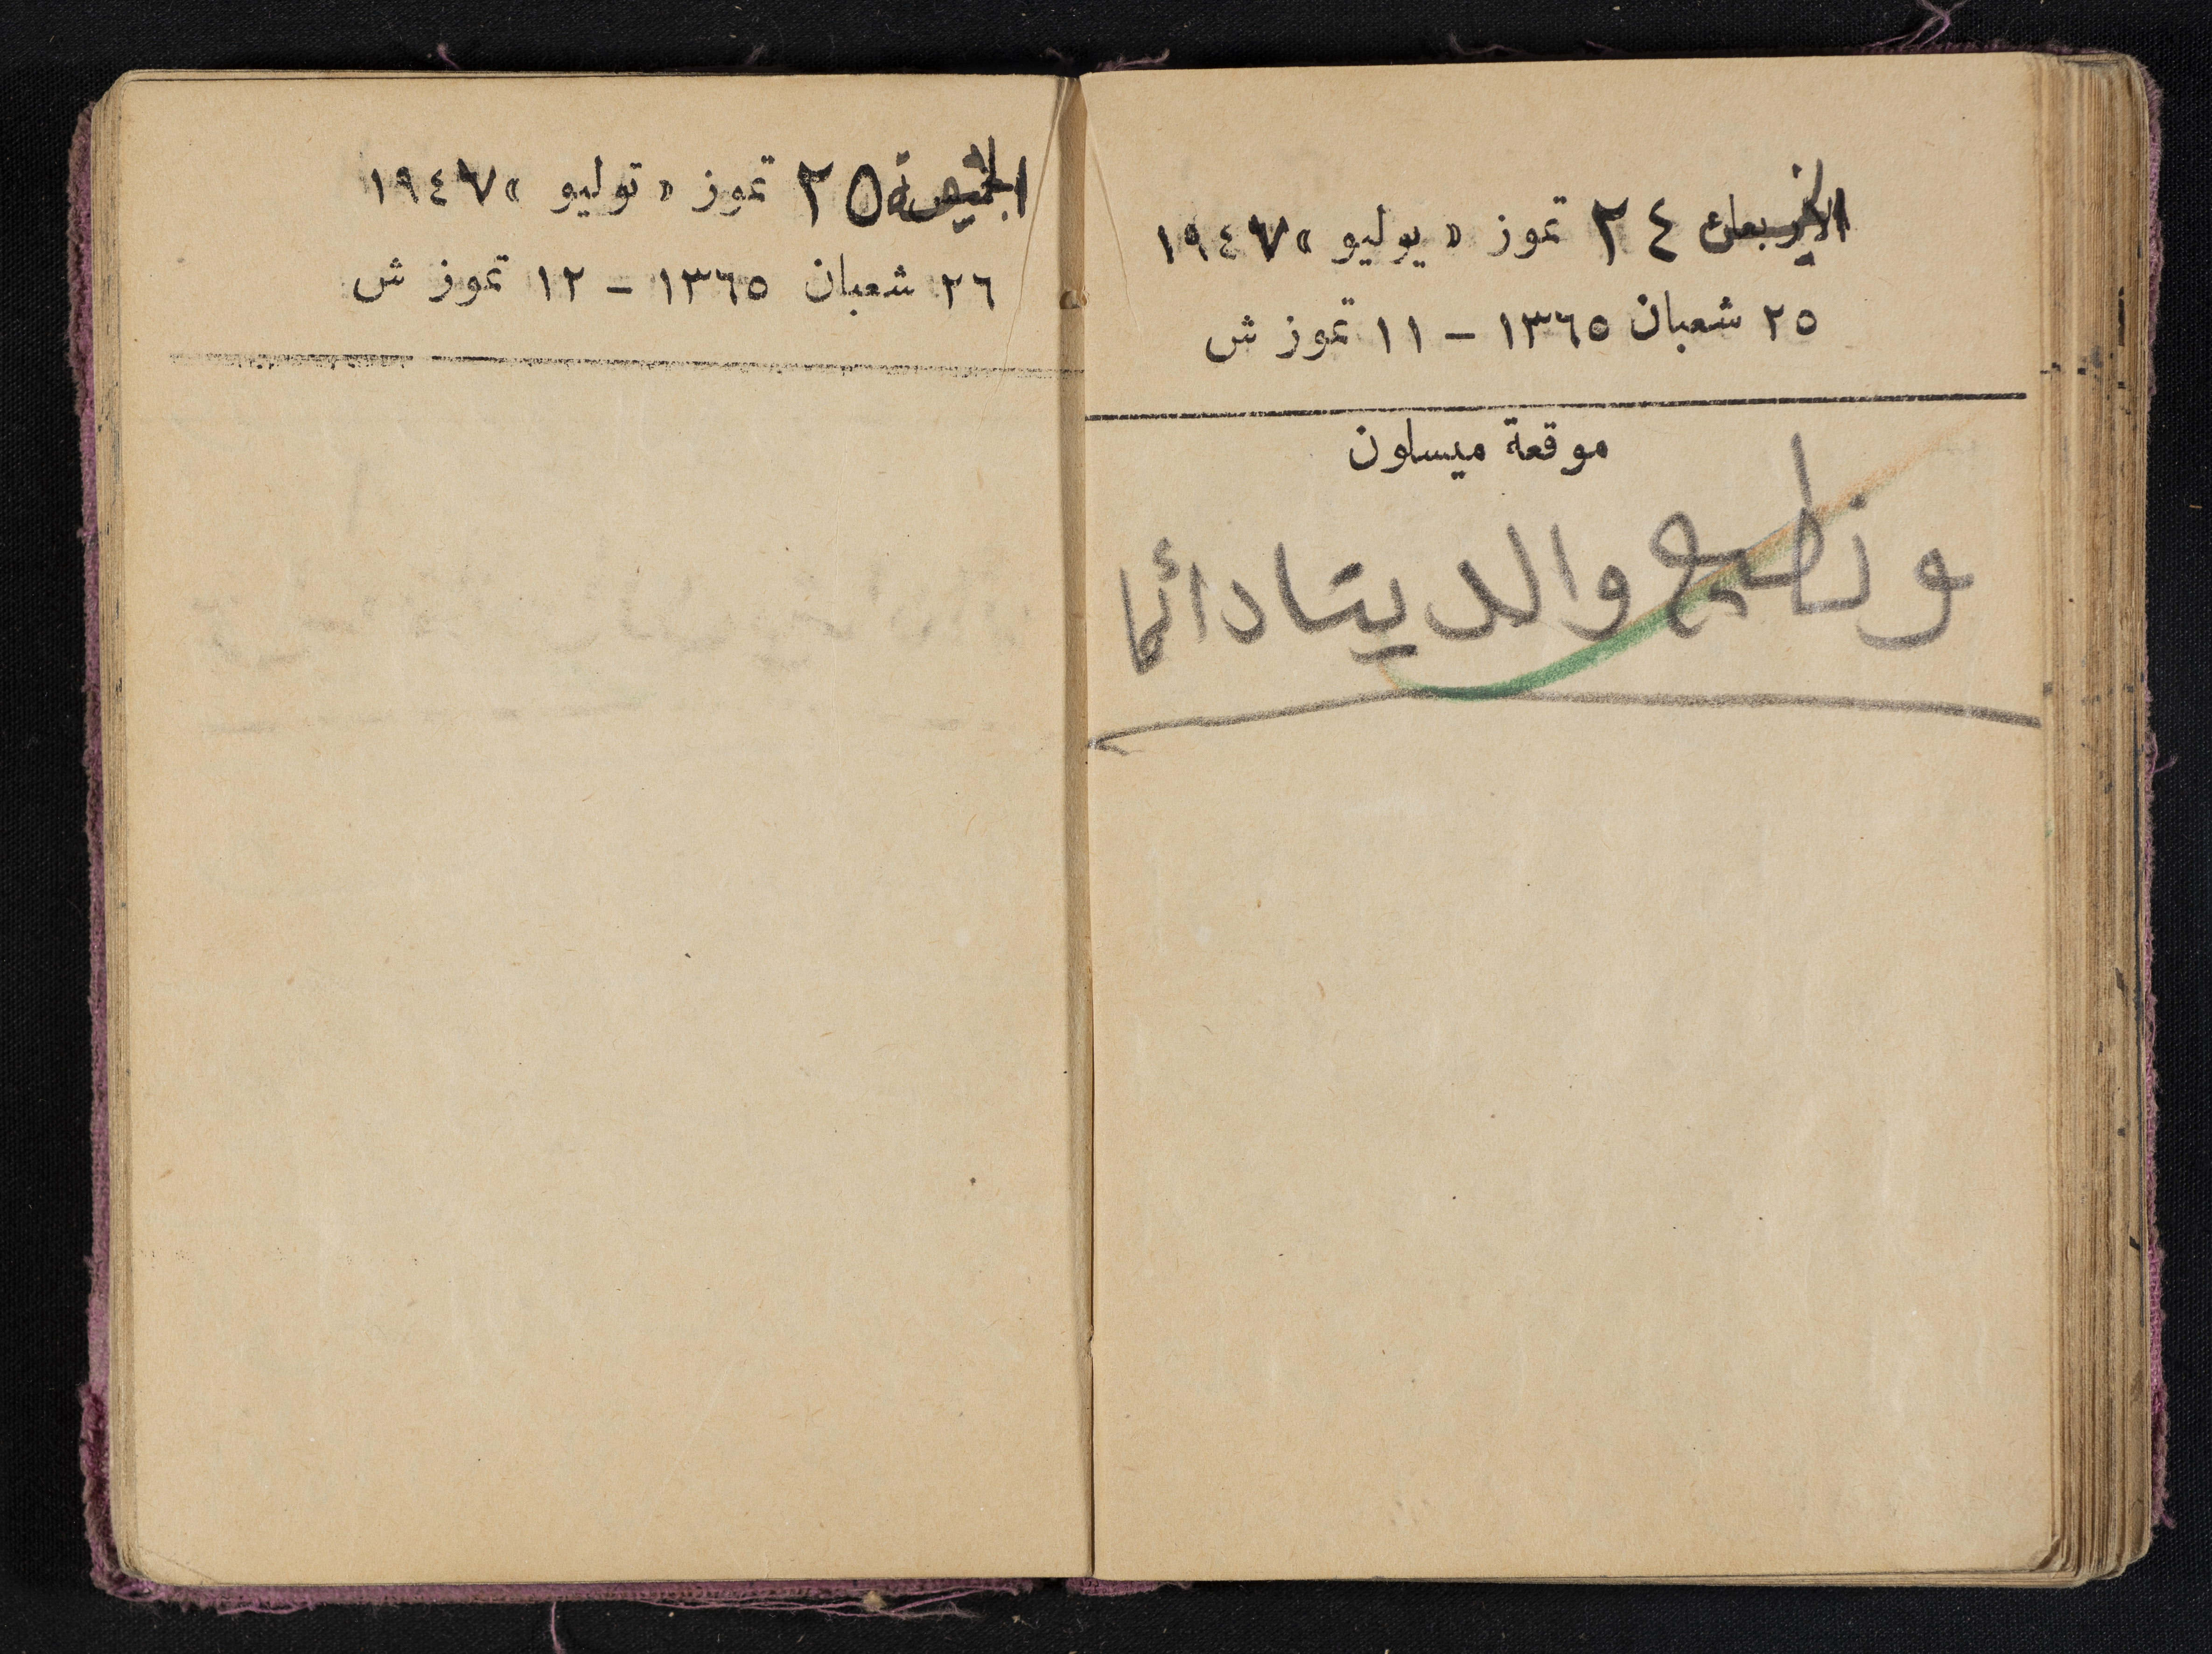 الخميس ٢٤ تموز « يوليو » ١٩٤٧
٢٥ شعبان ١٣٦٥ - ١١ تموز ش
موقعة ميسلون
ونطيع والدينا دائما
الجمعة ٢٥ تموز « توليو » ١٩٤٧
٢٦ شعبان ١٣٦٥ - ١٢ تموز ش